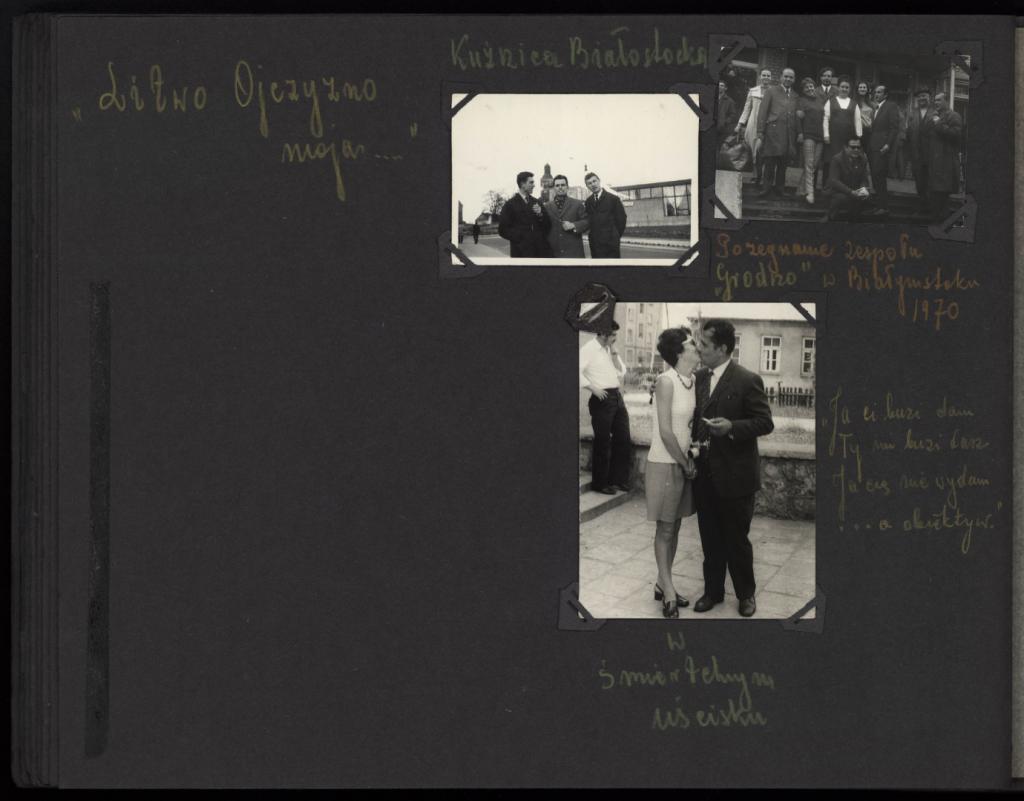 „Litwo Ojczyzno
moja...."
Kuźnica Białostocka
Pożegnanie zespołu
„Grodno" w Białymstoku
1970
„Ja ci buzi dam
Ty mi buzi dasz
Ja cię nie wydam
... a obiektyw."
w
śmiertelnym
uścisku